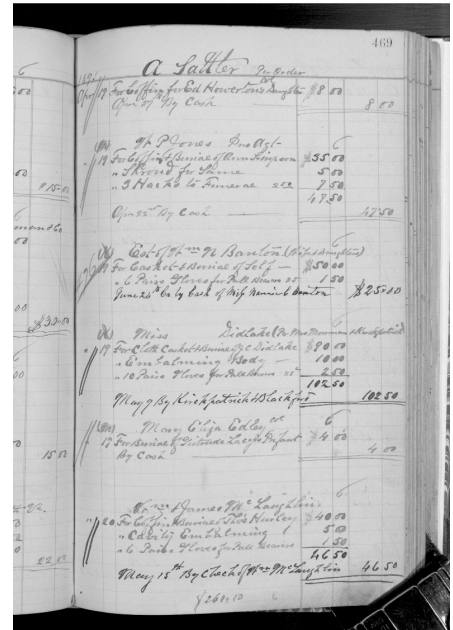 469
A Sattler Per Order
Apr 19 For Coffin for Ed Howerton's Daughter $8 00
By Cash 8 00
W P Jones Agt
19 For Coffin & Burial of Ann Simpson $35 00
" Shroud for Same 5 00
" 3 Hacks to Funeral 2 50 7 50
47 50
Apr 22nd By Cash 47 50
Est of Wm N Banton
19 For Casket & Burial of Self $50 00
" 6 Pairs Gloves for Pall Bearers 25 1 50
June 24th Cr by Cash of Wife Nannie Banton $25 00
Miss Didlake
19 For Cloth Casket & Burial of Didlake $90 00
" Embalming Body 10 00
" 10 Pairs Gloves for Pall Bearers 25 2 50
102 50
May 9 By Kirkpatrick & Blackford 102 50
Mary Eliza Edley col
17 For Burial of Gertrude Lacey's Infant $4 00
By Cash 4 00
Wm & James McLaughlin
20 For Coffin & Burial of Hurley $40 00
" Embalming 5 00
" 6 Pairs Gloves for Pall Bearers 1 50
46 50
May 15th By Check of Wm McLaughlin 46 50
15 00
22 00